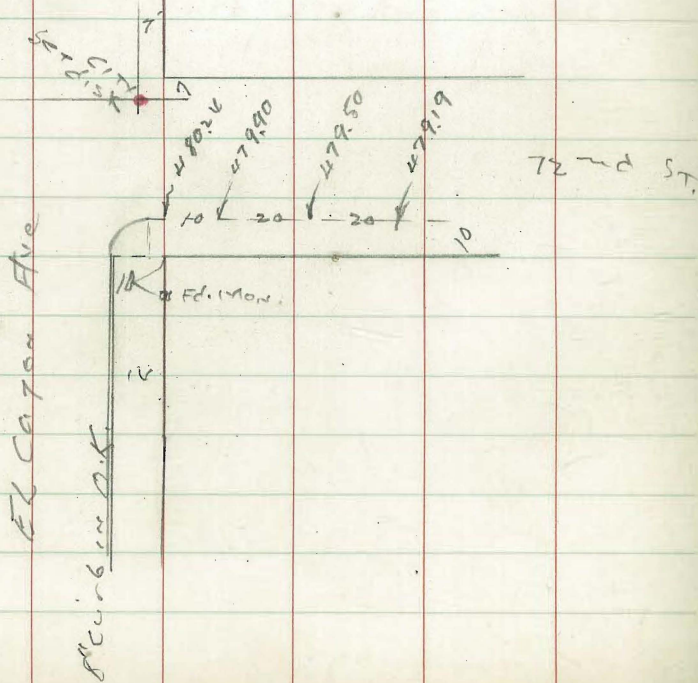 7
7
480.24
479.90
479.50
479.19
72nd St.
10 20 20
10
Fd. Mon.
14
El Cajon Ave
8" Curb in O.K.